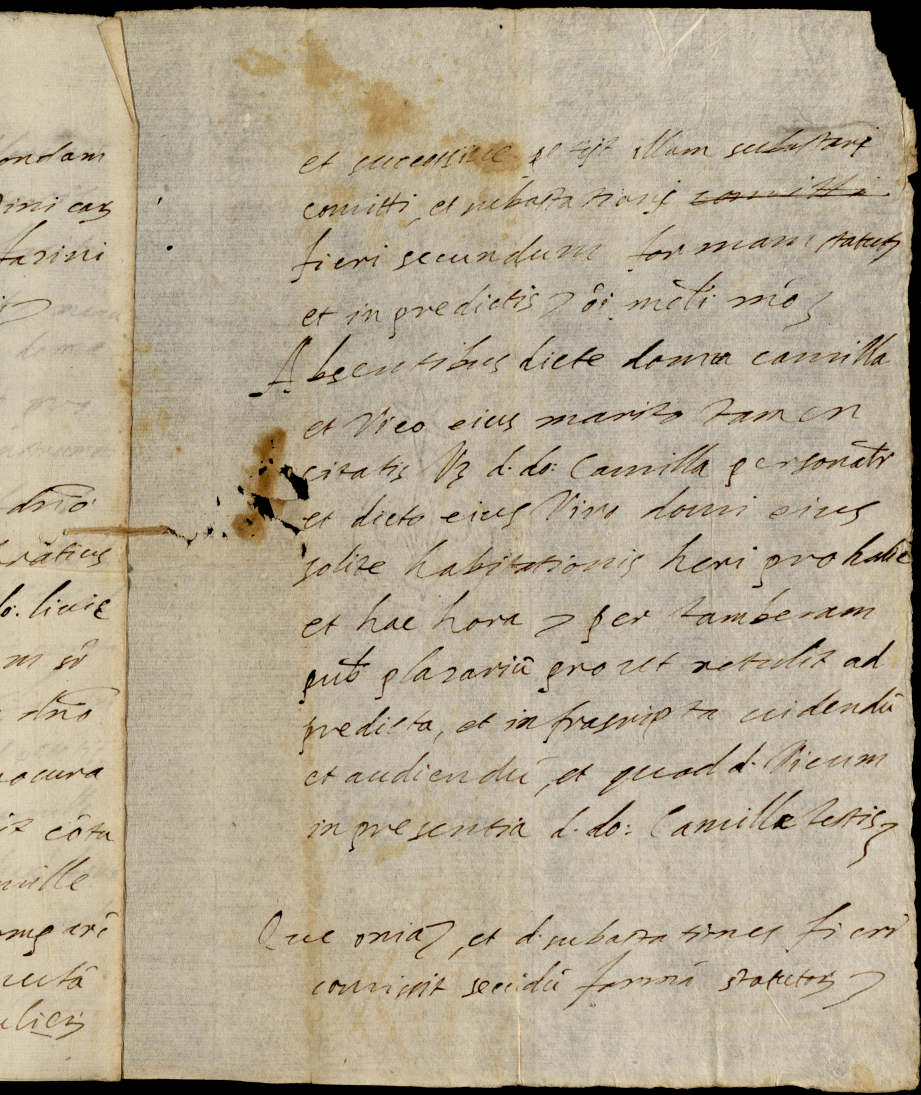 ondam
ini cas
farini
dno
ratius
do: livie
m sr
dno
ocura
it cota
mille
uta
et successive petijt illam subastari
comitti et subastationis comitti
fieri secundum formam statutor
et in predictis & oi meli mo
Absentibus dicte domna camilla
et Vico eius marito tamen
citatis Vz d. do: Camilla personatr
et dicto eius Viro domi eius
solite habitationis heri pro hodie
et hac hora per tamberam
pub plazariū prout retulit ad
predicta, et infrascripta videndū
et audiendū, et quod d. Vicum
in presentia d. do: Camille testis
Que onia, et d. subastationes fieri
comisit secūdū formā statutor